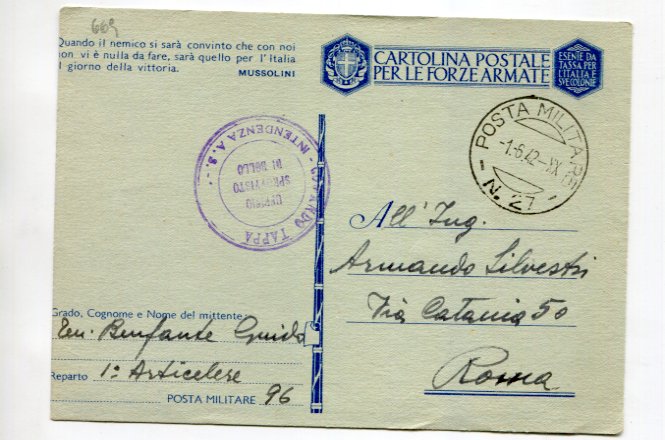 669
Quando il nemico si sarà convinto che con noi
non vi è nulla da fare, sarà quello per l'Italia
il giorno della vittoria.
MUSSOLINI
CARTOLINA POSTALE
PER LE FORZE ARMATE
ESENTE DA
TASSA PER
L'ITALIA E
SVE COLONIE
POSTA MILITARE
-1.6.42-XX
N. 27
COMANDO TAPPA - INTENDENZA A. S. -
UFFICIO
SPROVVISTO
DI BOLLO
All'Ing.
Armando Silvestri
Via Catania 50
Roma
Grado, Cognome e Nome del mittente:
Ten. Benfante Guido
Reparto 1° Articelere
POSTA MILITARE 96